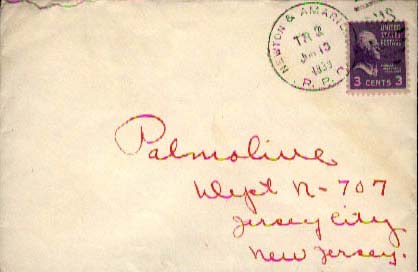 NEWTON & AMARIL
TR 2
JUN 13
1939
R. P. O.
UNITED STATES POSTAGE
3 CENTS 3
Palmolive
Dept N-707
Jersey City
New Jersey.